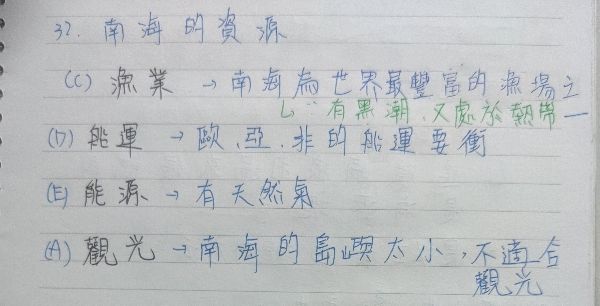 37. 南海的資源
(C) 漁業 → 南海為世界最豐富的漁場之一
↳ ∵有黑潮、又處於熱帶
(D) 船運 → 歐、亞、非的船運要衝
(E) 能源 → 有天然氣
(A) 觀光 → 南海的島嶼太小,不適合
觀光